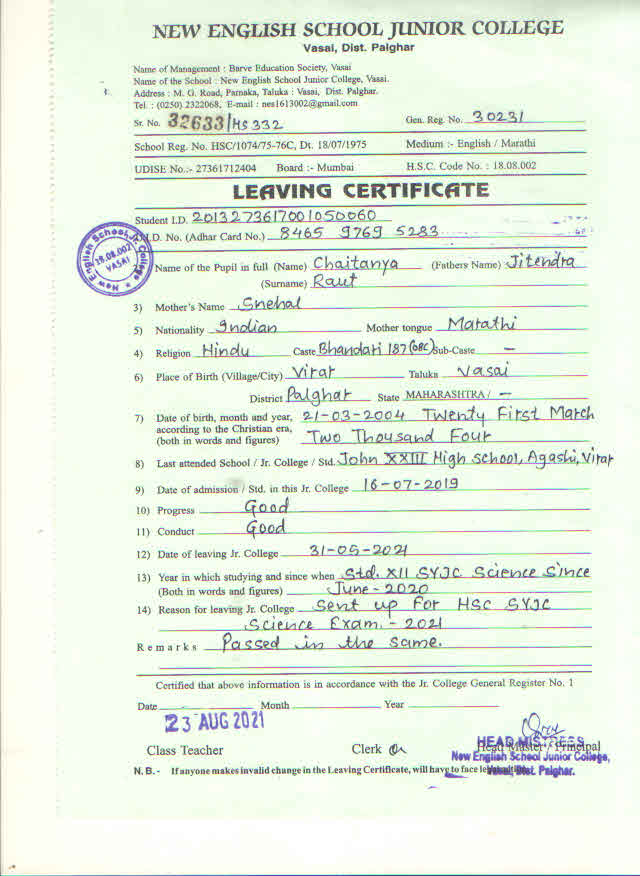 NEW ENGLISH SCHOOL JUNIOR COLLEGE
Vasai, Dist. Palghar
Name of Management : Barve Education Society, Vasai
Name of the School : New English School Junior College, Vasai.
Address : M. G. Road, Parnaka, Taluka : Vasai, Dist. Palghar.
Tel. : (0250) 2322068, E-mail : nes1613002@gmail.com
Sr. No. 32633/HS332 Gen. Reg. No. 30231
School Reg. No. HSC/1074/75-76C, Dt. 18/07/1975 Medium :- English / Marathi
UDISE No.:- 27361712404 Board :- Mumbai H.S.C. Code No. : 18.08.002
LEAVING CERTIFICATE
Student I.D. 2013273617001050060
I.D. No. (Adhar Card No.) 8465 9769 5283
New English School, Jr. College
18.08.002
VASAI
Name of the Pupil in full (Name) Chaitanya (Fathers Name) Jitendra
(Surname) Raut
3) Mother's Name Snehal
5) Nationality Indian Mother tongue Marathi
4) Religion Hindu Caste Bhandari 187(OBC) Sub-Caste —
6) Place of Birth (Village/City) Virar Taluka Vasai
District Palghar State MAHARASHTRA / —
7) Date of birth, month and year, 21-03-2004 Twenty First March
according to the Christian era,
(both in words and figures) Two Thousand Four
8) Last attended School / Jr. College / Std. John XXIII High school, Agashi, Virar
9) Date of admission / Std. in this Jr. College 16-07-2019
10) Progress Good
11) Conduct Good
12) Date of leaving Jr. College 31-05-2021
13) Year in which studying and since when Std. XII SYJC Science Since
(Both in words and figures) June-2020
14) Reason for leaving Jr. College Sent up for HSC SYJC
Science Exam.-2021
Remarks Passed in the same.
Certified that above information is in accordance with the Jr. College General Register No. 1
Date Month Year
23 AUG 2021
Class Teacher Clerk Head Master / Principal
HEAD MISTRESS
New English School Junior College,
Vasai, Dist. Palghar.
N. B.- If anyone makes invalid change in the Leaving Certificate, will have to face